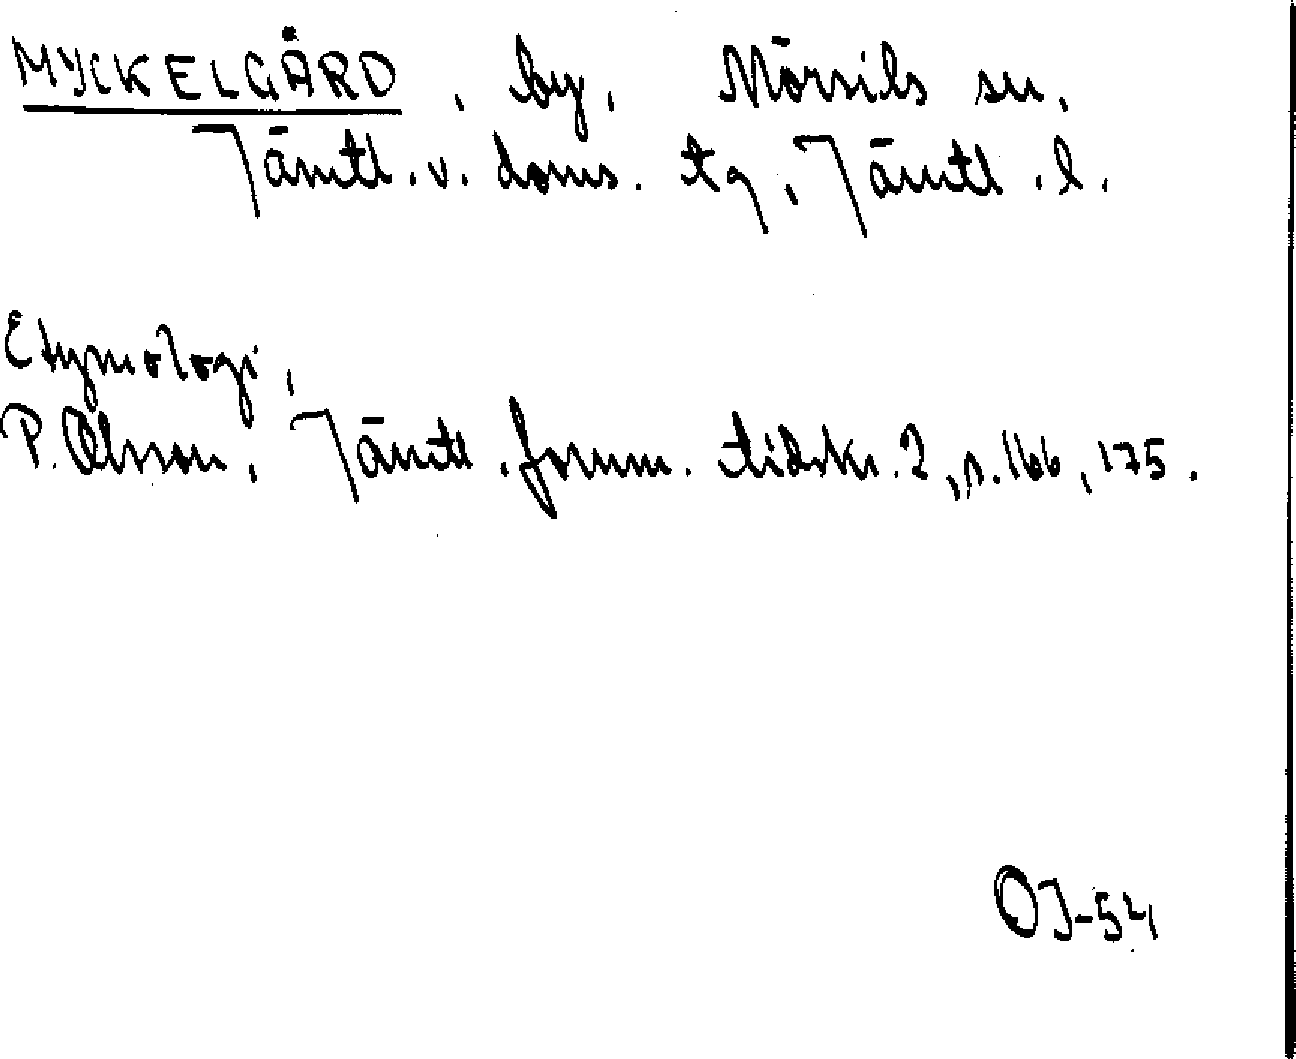 MYCKELGÅRD, by, Mörsils sn,
Jämtl. v. doms. tg, Jämtl. l.
Etymologi,
P. Olsson, Jämtl. fornm. tidskr. 2, s. 166, 175.
OJ-54